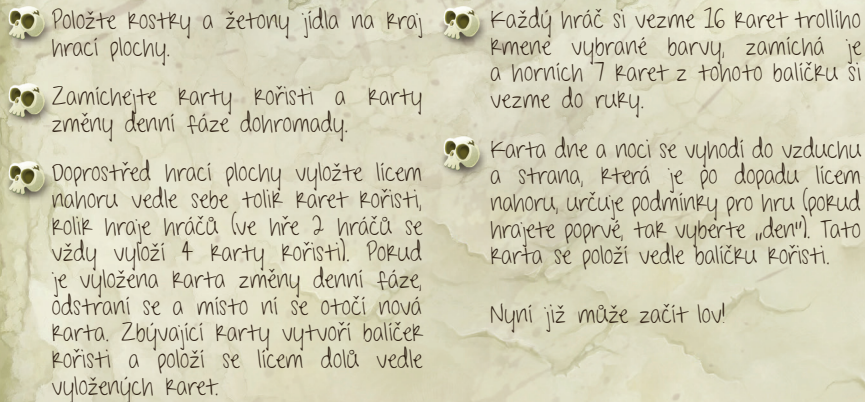 Položte kostky a žetony jídla na kraj
hrací plochy.
Zamíchejte karty kořisti a karty
změny denní fáze dohromady.
Doprostřed hrací plochy vyložte lícem
nahoru vedle sebe tolik karet kořisti,
kolik hraje hráčů (ve hře 2 hráčů se
vždy vyloží 4 karty kořisti). Pokud
je vyložena karta změny denní fáze,
odstraní se a místo ní se otočí nová
karta. Zbývající karty vytvoří balíček
kořisti a položí se lícem dolů vedle
vyložených karet.
Každý hráč si vezme 16 karet trollího
kmene vybrané barvy, zamíchá je
a horních 7 karet z tohoto balíčku si
vezme do ruky.
Karta dne a noci se vyhodí do vzduchu
a strana, která je po dopadu lícem
nahoru, určuje podmínky pro hru (pokud
hrajete poprvé, tak vyberte „den"). Tato
karta se položí vedle balíčku kořisti.
Nyní již může začít lov!